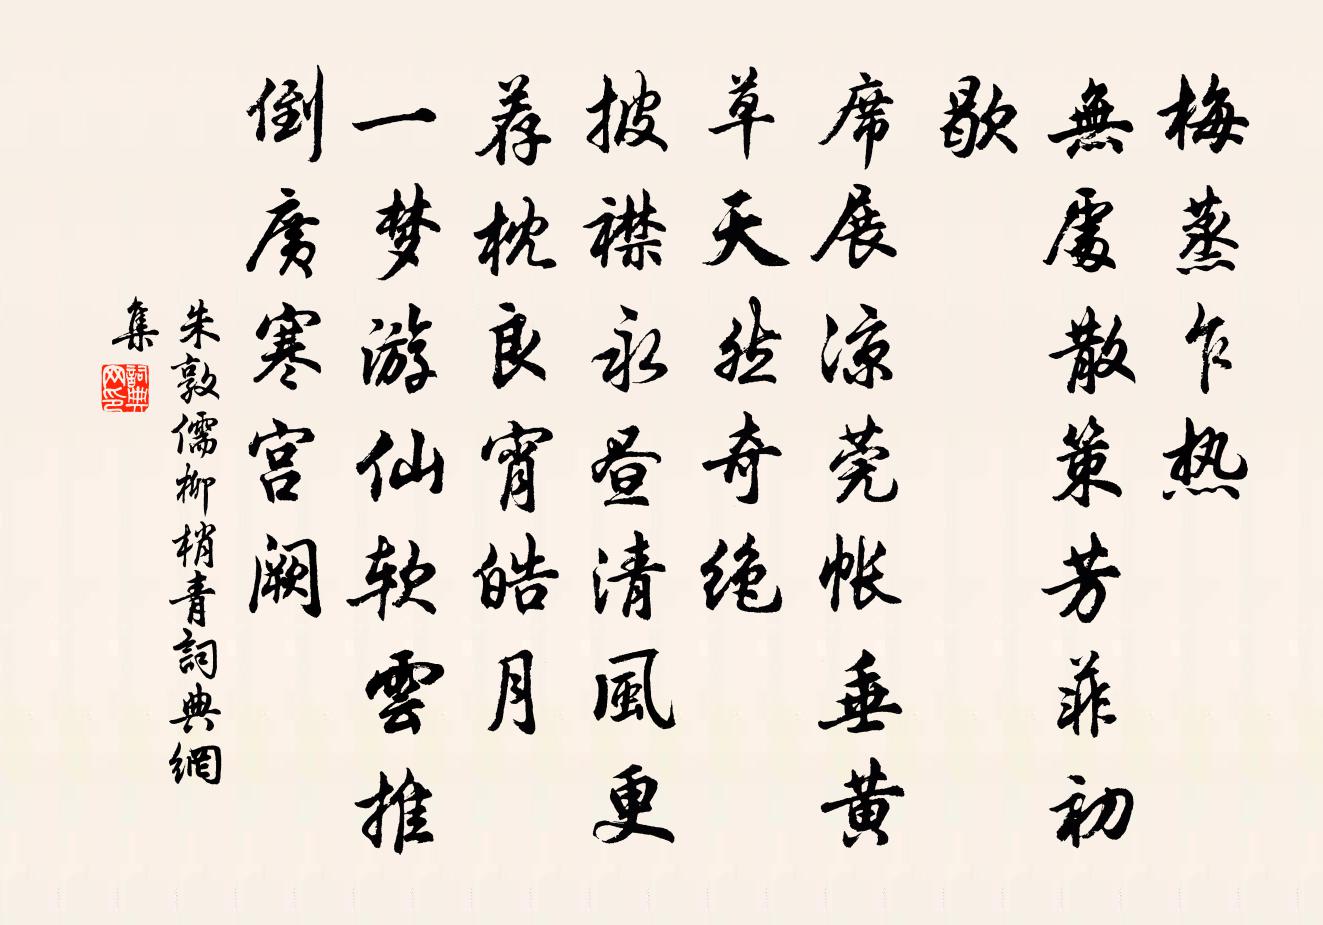 梅蒸乍热
無處散策芳菲初
歇
席展涼莞帐垂黄
草天然奇绝
披襟永昼清風更
荐枕良宵皓月
一梦游仙软雲推
倒廣寒宫阙
朱敦儒柳梢青詞典網
集
詞典网印